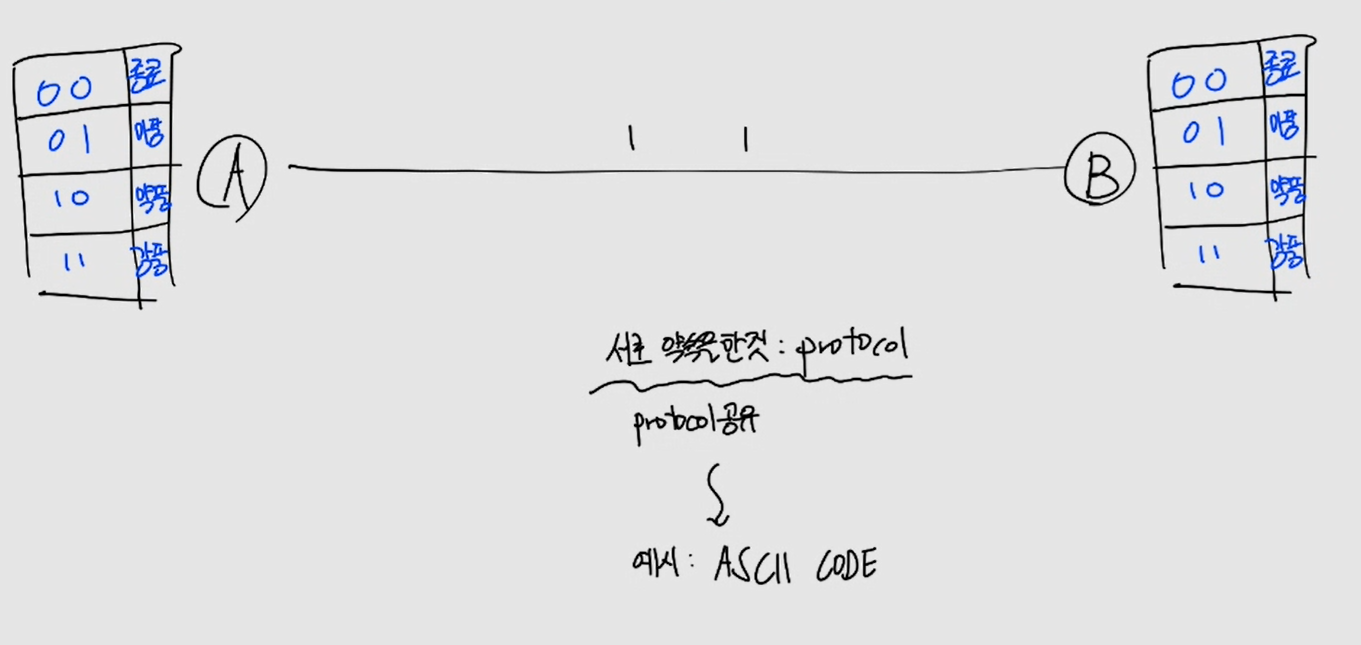 00 종료
01 미풍
10 약풍
11 강풍
A
1 1
B
00 종료
01 미풍
10 약풍
11 강풍
서로 약속한것: protocol
protocol공유
예시: ASCII CODE